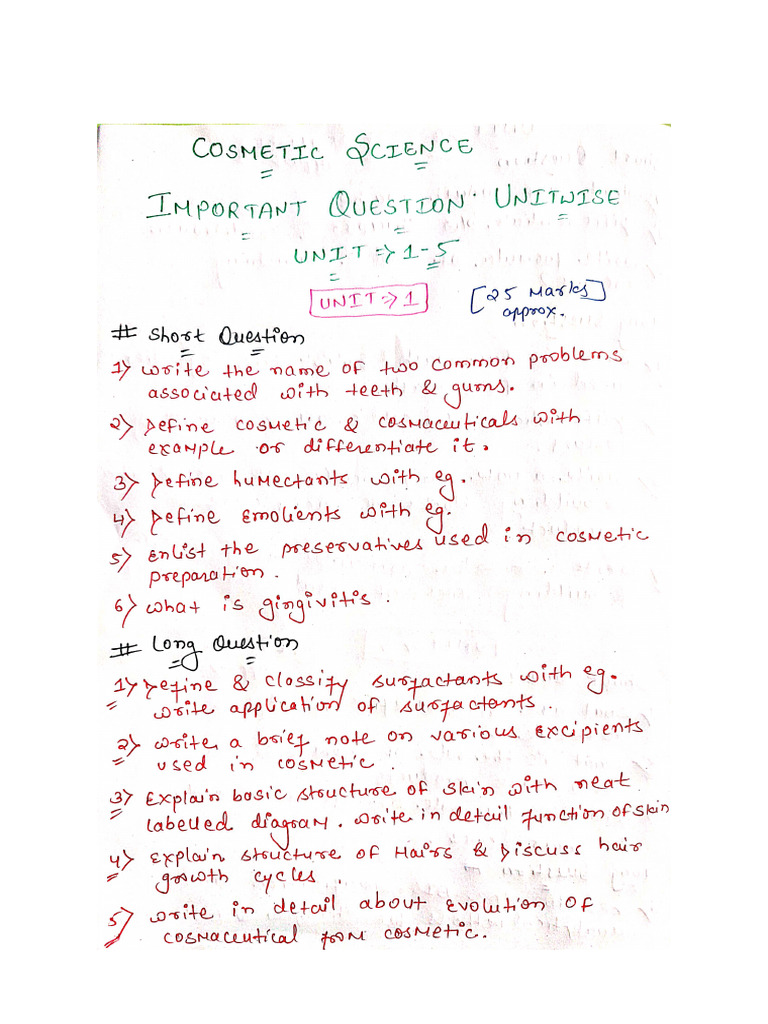 COSMETIC SCIENCE
IMPORTANT QUESTION UNITWISE
UNIT => 1-5
UNIT => 1 [25 Marks]
approx.
# Short Question
1) Write the name of two common problems
associated with teeth & gums.
2) Define cosmetic & cosmaceuticals with
example or differentiate it.
3) Define humectants with eg.
4) Define Emolients with eg.
5) Enlist the preservatives used in cosmetic
preparation.
6) What is gingivitis.
# Long Question
1) Define & classify surfactants with eg.
write application of surfactants.
2) Write a brief note on various excipients
used in cosmetic.
3) Explain basic structure of skin with neat
labelled diagram. Write in detail function of skin
4) Explain structure of Hairs & Discuss hair
growth cycles.
5) Write in detail about Evolution of
cosmaceutical from cosmetic.